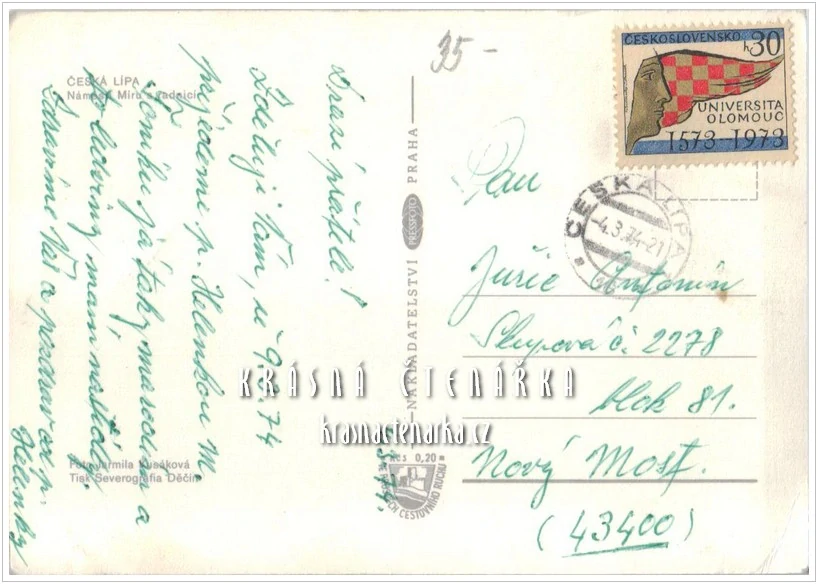 35 –
ČESKOSLOVENSKO
h 30
UNIVERSITA
OLOMOUC
1573–1973
ČESKÁ LÍPA
-4.3.74-21
ČESKÁ LÍPA
Náměstí Míru s radnicí
Drazí přátelé!
Zděluji Vám, že 9.3.74
přijedeme p. Helenkou M
Toníku já taky marodím a
mám
Zdravíme Vás a pozdrav od p.
Helenky
NAKLADATELSTVÍ PRESSFOTO PRAHA
Kčs 0,20
CESTOVNÍHO RUCHU
Foto Jarmila Kusáková
Tisk Severografia Děčín
Pan
Juřic Antonín
Skupova č. 2278
blok 81.
Nový Most.
(43400)
KRÁSNÁ ČTENÁŘKA
krasnactenarka.cz